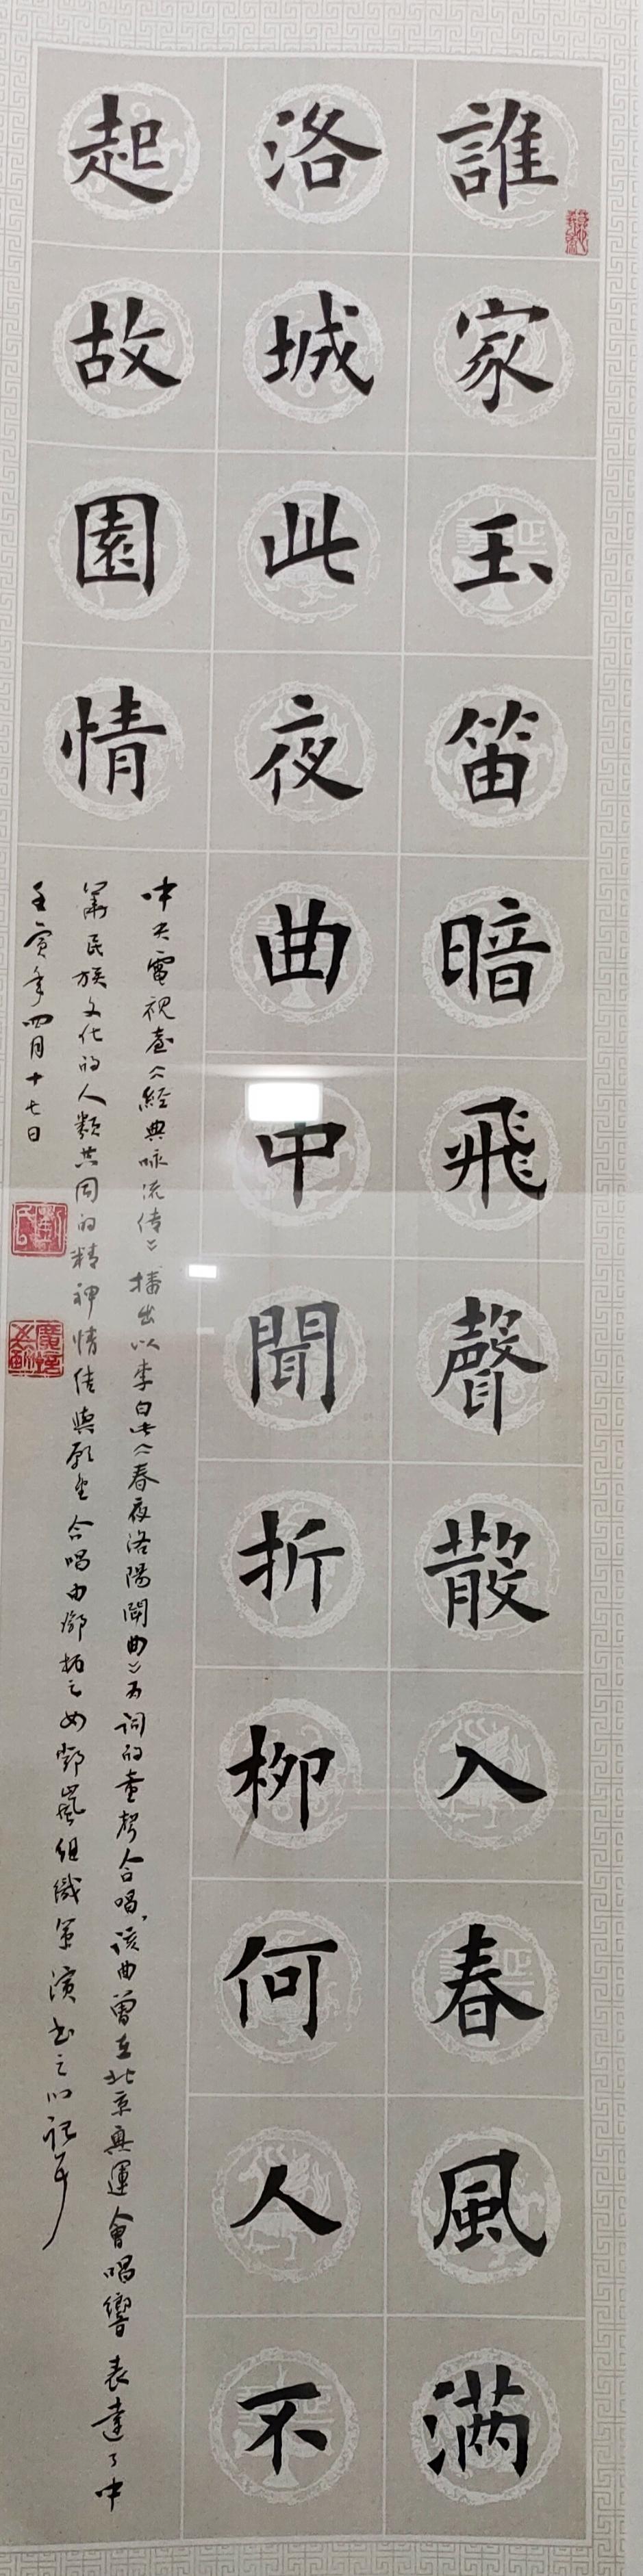 誰家玉笛暗飛聲散入春風滿
洛城此夜曲中聞折柳何人不
起故園情
中央電視臺《經典咏流传》播出以李白《春夜洛陽聞曲》为词的童声合唱,该曲曾在北京奥運會唱響 表達了中
民族文化的人類共同的精神情使與願望 合唱由鄧拓之女鄧嵐组織筹演 书之以
壬寅年四月十七日
劉氏